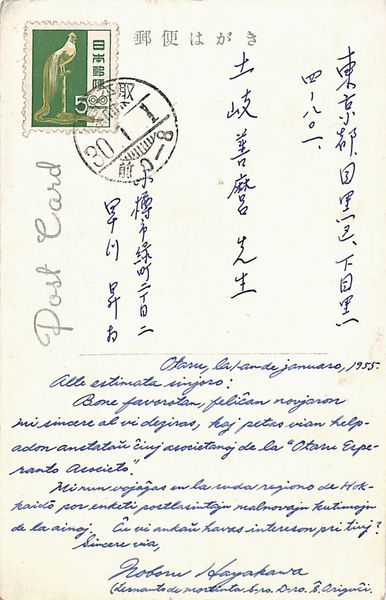 郵便はがき
日本郵便
500
30
1
1
前0-8
Post Card
東京都目黒区下目黒
四ノ八〇一
土岐善麿先生
小樽市緑町二丁目二
早川昇
Otaru, la 1-an de januaro, 1955.
Alte estimata sinjoro:
Bone favorotan, feliĉan novjaron
mi sincere al vi deziras, kaj petas vian help-
adon anstataŭ ĉiuj asocietanoj de la "Otaru Espe-
ranto Asocieto".
Mi nun vojaĝas en la suda regiono de Hok-
kaido por enketi postlasintajn malnovajn kutimojn
de la ainoj. Ĉu vi ankaŭ havas intereson pri tiuj?
Sincere via,
Noboru Hayakawa
(Lernanto de mortinta s-ro. D-ro. Ŝ. Ariguĉi.